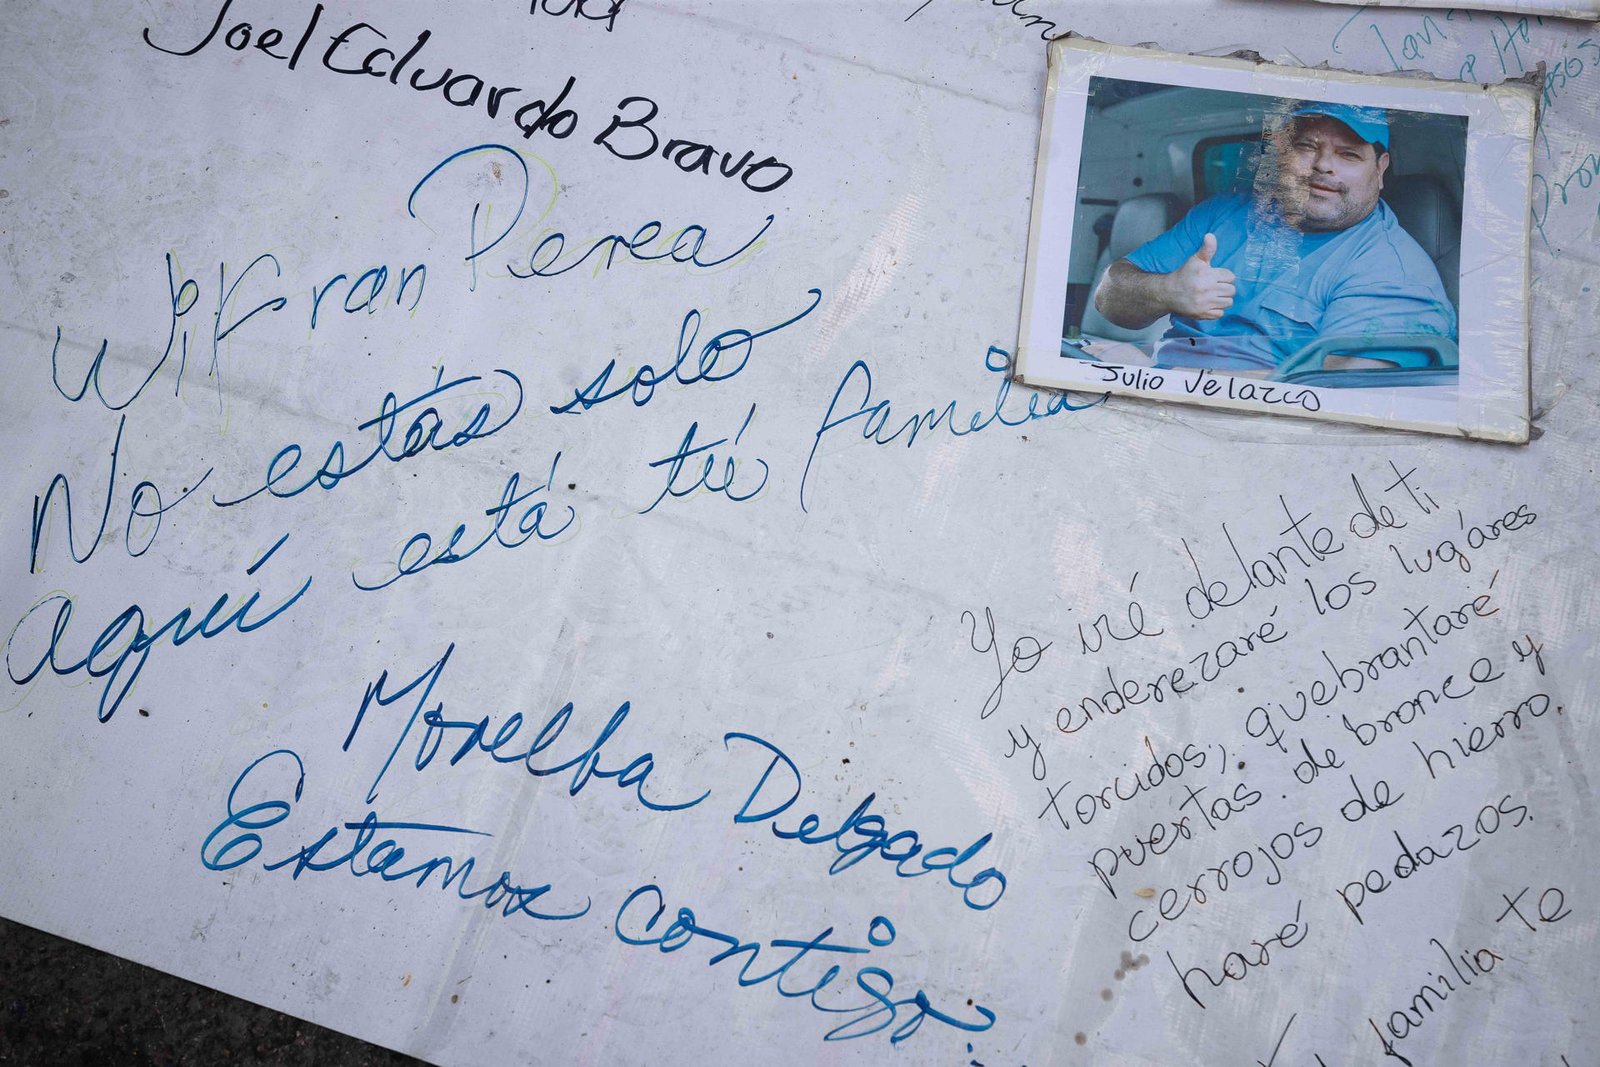 Joel Eduardo Bravo
Wilfran Perea
No estás solo
aquí está tú familia
Julio Velazco
Morelba Delgado
Estamos contigo
Yo iré delante de ti
y enderezaré los lugáres
torcidos, quebrantaré
puertas de bronce y
cerrojos de hierro. y
haré pedazos.
familia te